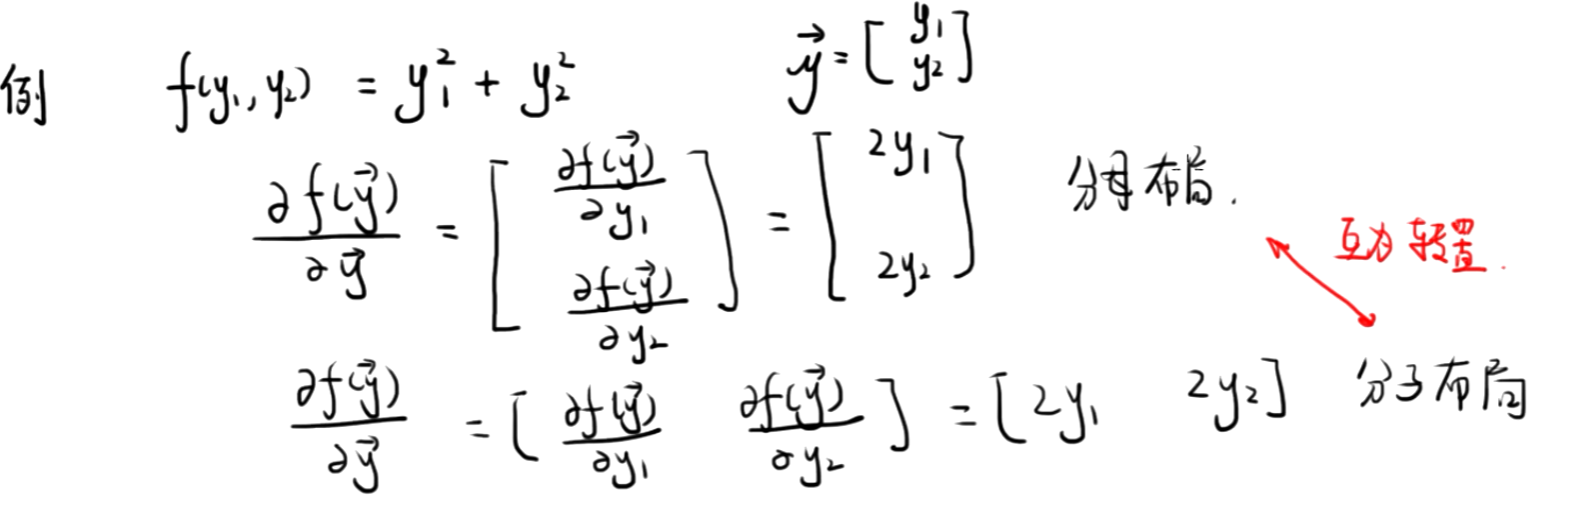 例 f(y₁, y₂) = y₁² + y₂² y⃗ = [ y₁ y₂ ]
∂f(y⃗)/∂y⃗ = [ ∂f(y⃗)/∂y₁ ∂f(y⃗)/∂y₂ ] = [ 2y₁ 2y₂ ] 分母布局.
互为转置.
∂f(y⃗)/∂y⃗ = [ ∂f(y⃗)/∂y₁ ∂f(y⃗)/∂y₂ ] = [ 2y₁ 2y₂ ] 分子布局